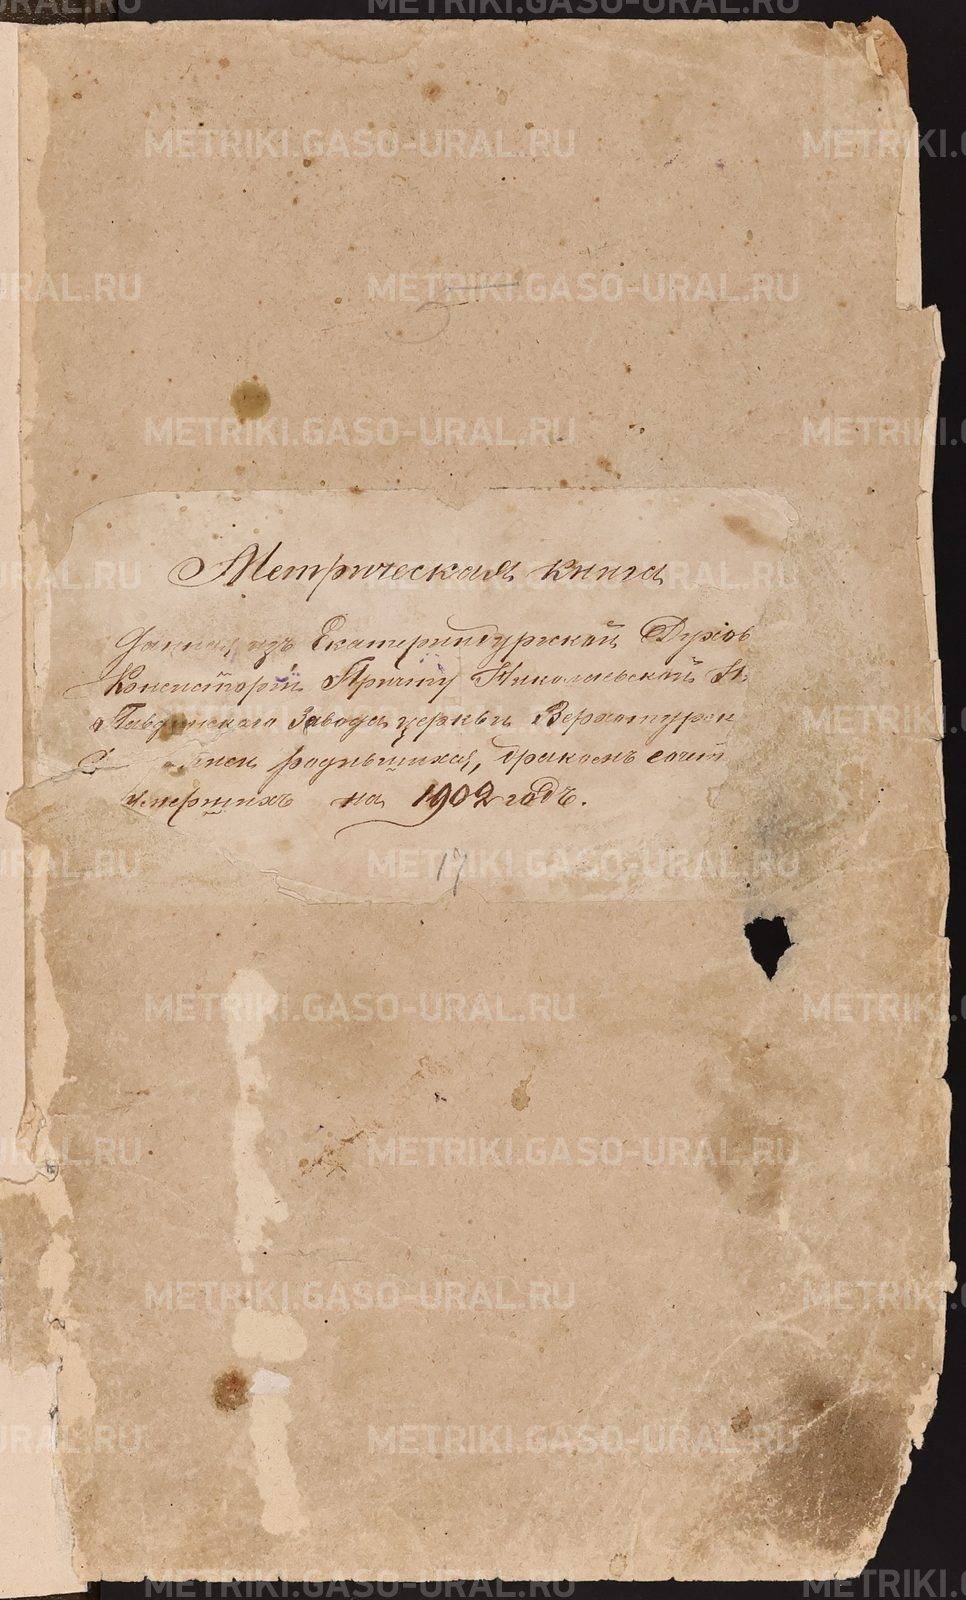 Метрическая книга
Данная изъ Екатеринбургской Духов
Консисторіи Причту Николаевской Н.
Павдинскаго Завода церкви Верхотурск
родившихся, бракомъ сочет
умершихъ на 1902 годъ.
17
METRIKI.GASO-URAL.RU